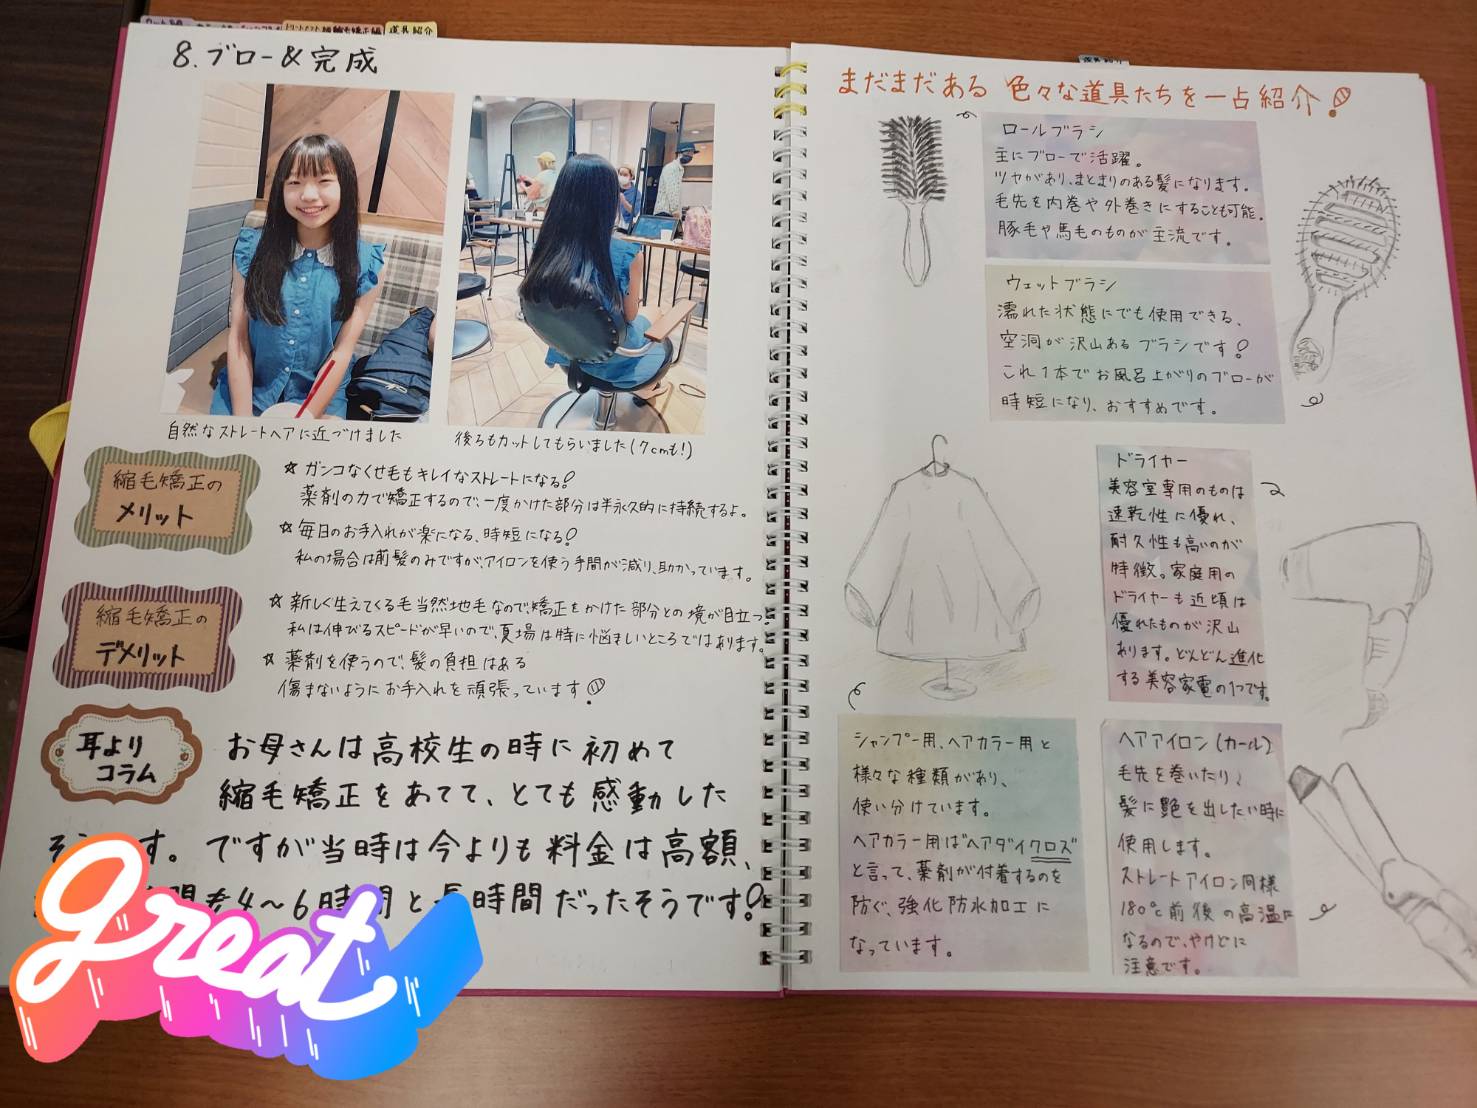 道具紹介
8.ブロー&完成
自然なストレートヘアに近づけました
後ろもカットしてもらいました(7cmも!)
縮毛矯正の
メリット
☆ ガンコなくせ毛もキレイなストレートになる!
薬剤の力で矯正するので、一度かけた部分は半永久的に持続するよ。
☆ 毎日のお手入れが楽になる、時短になる!
私の場合は前髪のみですが、アイロンを使う手間が減り、助かっています。
縮毛矯正の
デメリット
☆ 新しく生えてくる毛当然地毛なので、矯正をかけた部分との境が目立つ
私は伸びるスピードが早いので、夏場は特に悩ましいところではあります。
☆ 薬剤を使うので、髪の負担はある
傷まないようにお手入れを頑張っています!
耳より
コラム
お母さんは高校生の時に初めて
縮毛矯正をあてて、とても感動した
そうです。ですが当時は今よりも料金は高額、
間も4〜6時間と長時間だったそうです!
great
道具紹介
まだまだある 色々な道具たちを一占紹介!
ロールブラシ
主にブローで活躍。
ツヤがあり、まとまりのある髪になります。
毛先を内巻や外巻きにすることも可能。
豚毛や馬毛のものが主流です。
ウェットブラシ
濡れた状態にでも使用できる、
空洞が沢山あるブラシです!
これ1本でお風呂上がりのブローが
時短になり、おすすめです。
ドライヤー
美容室専用のものは
速乾性に優れ、
耐久性も高いのが
特徴。家庭用の
ドライヤーも近頃は
優れたものが沢山
あります。どんどん進化
する美容家電の1つです。
シャンプー用、ヘアカラー用と
様々な種類があり、
使い分けています。
ヘアカラー用は"ヘアダイクロス"
と言って、薬剤が付着するのを
防ぐ、強化防水加工に
なっています。
ヘアアイロン(カール)
毛先を巻いたり、
髪に艶を出したい時に
使用します。
ストレートアイロン同様
180℃前後の高温に
なるので、やけどに
注意です。